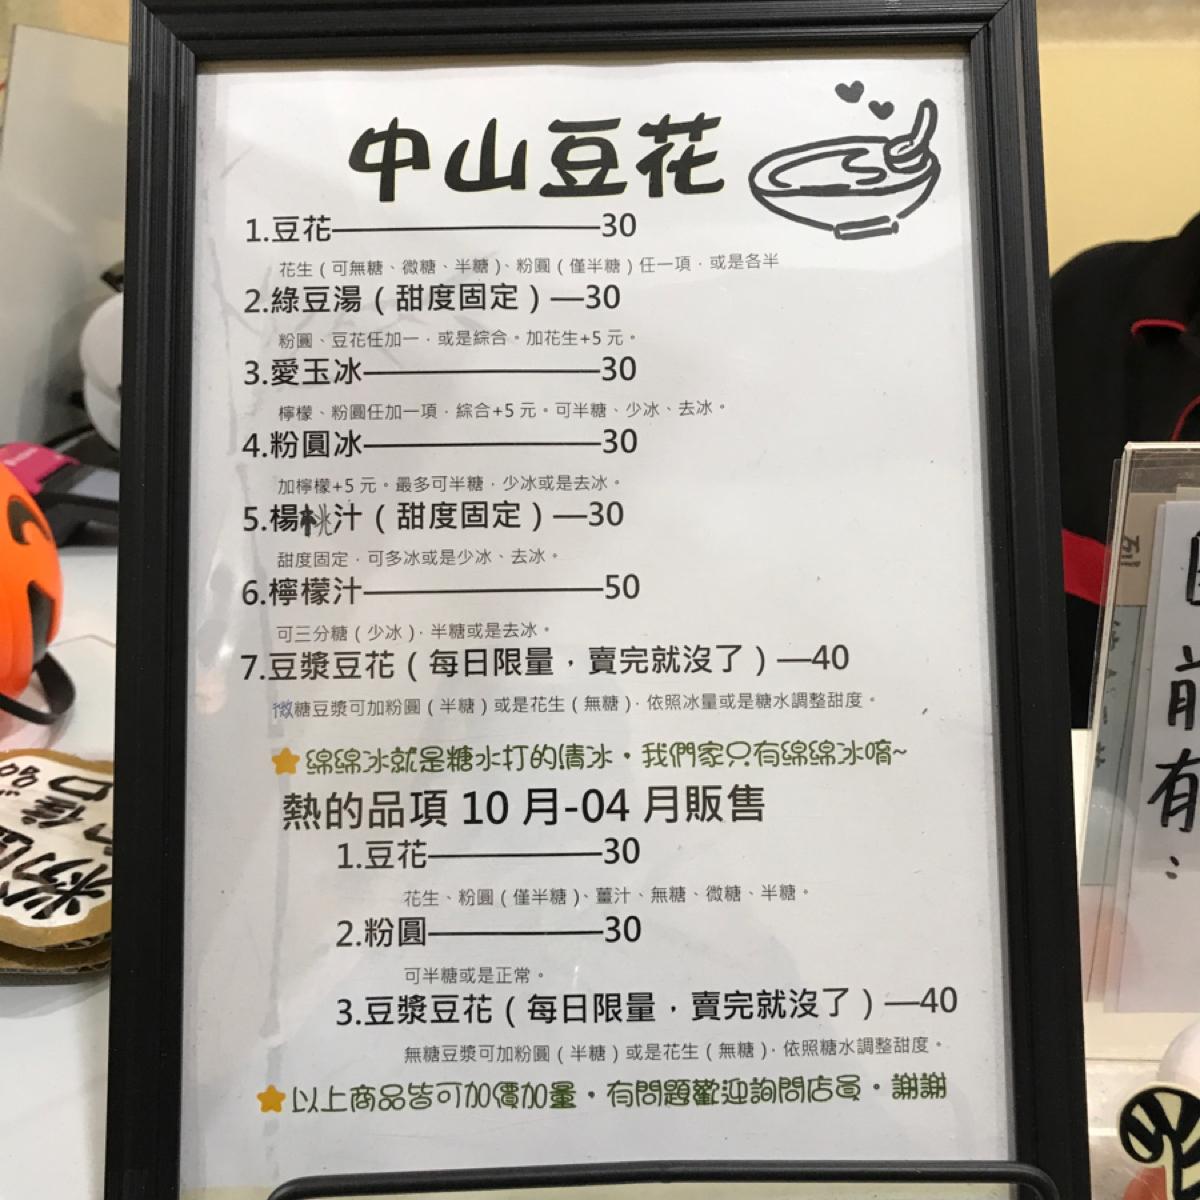 中山豆花
1.豆花—————————30
花生（可無糖、微糖、半糖）、粉圓（僅半糖）任一項，或是各半
2.綠豆湯（甜度固定）—30
粉圓、豆花任加一，或是綜合。加花生+5 元。
3.愛玉冰————————30
檸檬、粉圓任加一項，綜合+5 元。可半糖、少冰、去冰。
4.粉圓冰————————30
加檸檬+5 元。最多可半糖，少冰或是去冰。
5.楊桃汁（甜度固定）—30
甜度固定，可多冰或是少冰、去冰。
6.檸檬汁————————50
可三分糖（少冰），半糖或是去冰。
7.豆漿豆花（每日限量，賣完就沒了）—40
微糖豆漿可加粉圓（半糖）或是花生（無糖），依照冰量或是糖水調整甜度。
綿綿冰就是糖水打的清冰。我們家只有綿綿冰唷~
熱的品項 10 月-04 月販售
1.豆花——————30
花生、粉圓（僅半糖）、薑汁、無糖、微糖、半糖。
2.粉圓——————30
可半糖或是正常。
3.豆漿豆花（每日限量，賣完就沒了）—40
無糖豆漿可加粉圓（半糖）或是花生（無糖），依照糖水調整甜度。
以上商品皆可加價加量。有問題歡迎詢問店員。謝謝
前有：